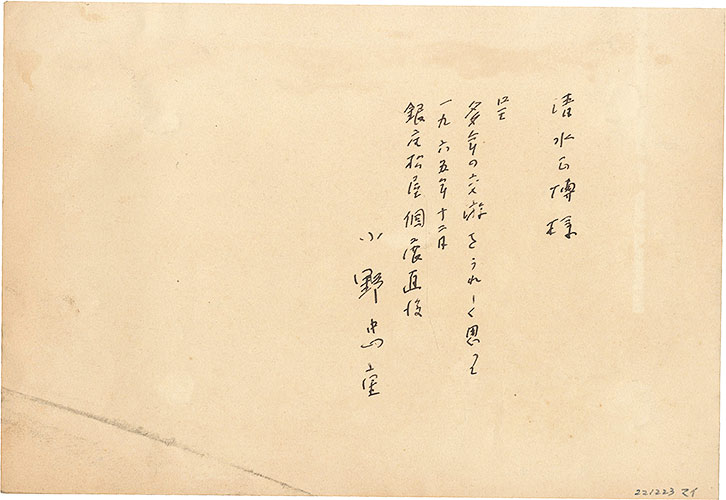 清水正博様
呈
多年の交游をうれしく思って
一九六五年十二月
銀座松屋個展直後
小野忠重
221223 マイ